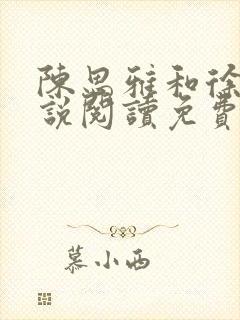 陳思雅和徐
說閱讀免費
慕小西